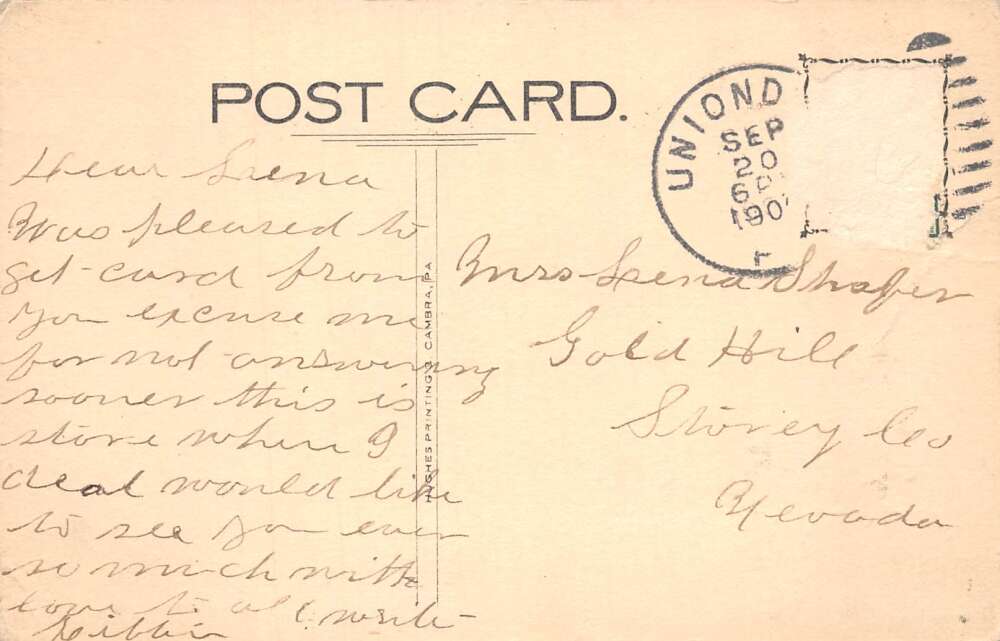 POST CARD.
UNIOND
SEP
20
6 P
190
Dear Lena
Was pleased to
get card from
you excuse me
for not answering
sooner this is
store where I
deal would like
to see you ever
so much with
love to all write
Libbie
HUGHES PRINTING CO. CAMBRA, PA
Mrs Lena Shafer
Gold Hill
Storey Co
Nevada